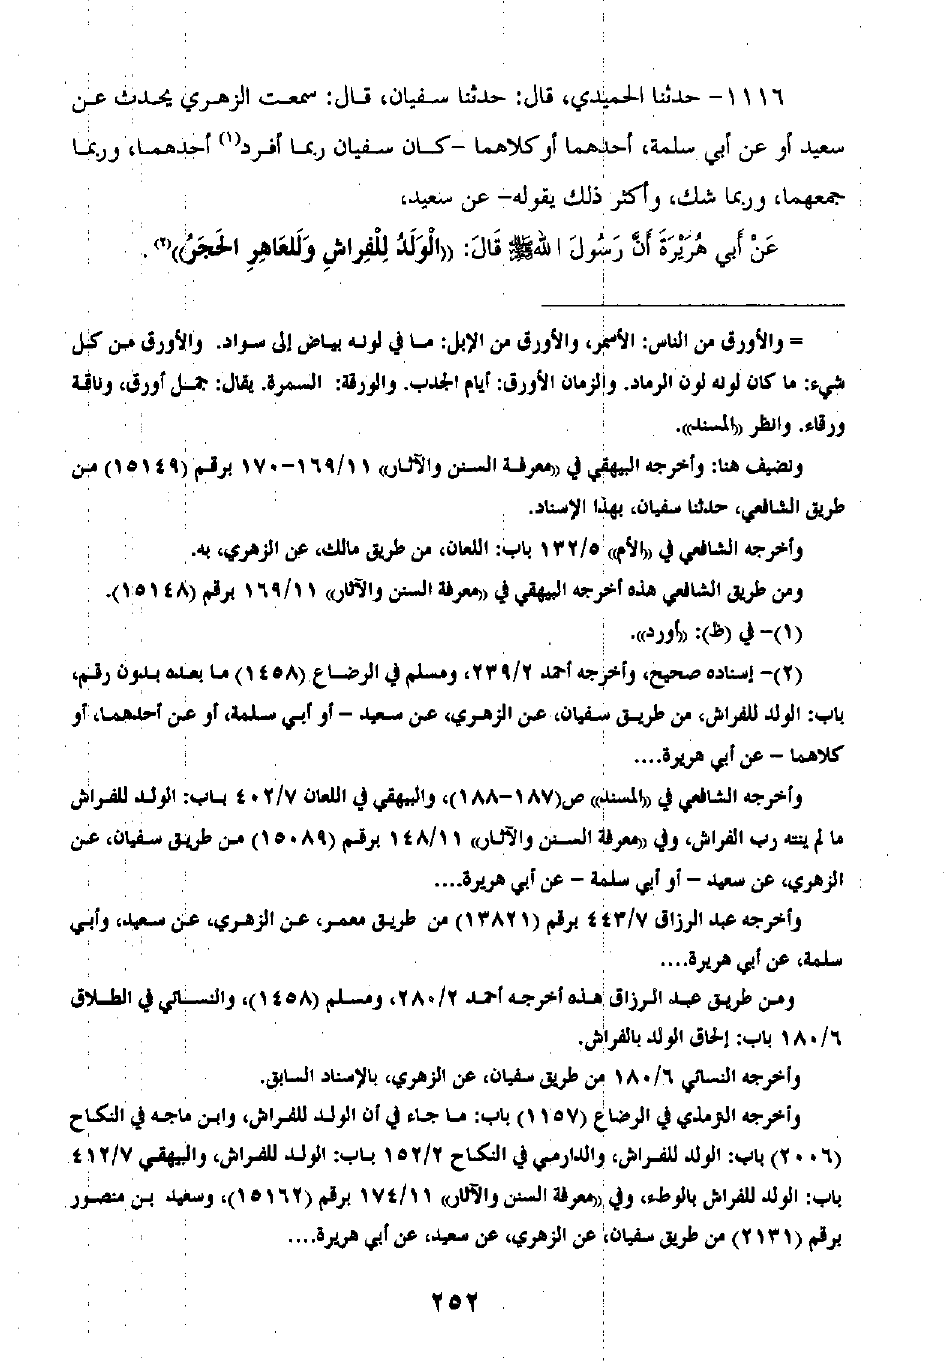 ١١١٦- حدثنا الحميدي، قال: حدثنا سفيان، قال: سمعت الزهري يحدث عن
سعيد أو عن أبي سلمة، أحدهما أو كلاهما -كان سفيان ربما أفرد(١) أحدهما، وربما
جمعهما، وربما شك، وأكثر ذلك يقوله- عن سعيد،
عَنْ أَبِي هُرَيْرَةَ أَنَّ رَسُولَ اللهِ ﷺ قَالَ: ((الْوَلَدُ لِلْفِرَاشِ وَلِلْعَاهِرِ الْحَجَرُ))(٢).
= والأورق من الناس: الأسمر، والأورق من الإبل: ما في لونه بياض إلى سواد. والأورق من كل
شيء: ما كان لونه لون الرماد. والزمان الأورق: أيام الجدب. والورقة: السمرة. يقال: جمل أورق، وناقة
ورقاء. وانظر ((المسند)).
ونضيف هنا: وأخرجه البيهقي في ((معرفة السنن والآثار)) ١٦٩/١١-١٧٠ برقم (١٥١٤٩) من
طريق الشافعي، حدثنا سفيان، بهذا الإسناد.
وأخرجه الشافعي في ((الأم)) ١٣٢/٥ باب: اللعان، من طريق مالك، عن الزهري، به.
ومن طريق الشافعي هذه أخرجه البيهقي في ((معرفة السنن والآثار)) ١٦٩/١١ برقم (١٥١٤٨).
(١)- في (ظ): ((أورد)).
(٢)- إسناده صحيح، وأخرجه أحمد ٢٣٩/٢، ومسلم في الرضاع (١٤٥٨) ما بعده بدون رقم،
باب: الولد للفراش، من طريق سفيان، عن الزهري، عن سعيد - أو أبي سلمة، أو عن أحدهما، أو
كلاهما - عن أبي هريرة....
وأخرجه الشافعي في ((المسند)) ص(١٨٧-١٨٨)، والبيهقي في اللعان ٤٠٢/٧ باب: الولد للفراش
ما لم ينته رب الفراش، وفي ((معرفة السنن والآثار)) ١٤٨/١١ برقم (١٥٠٨٩) من طريق سفيان، عن
الزهري، عن سعيد - أو أبي سلمة - عن أبي هريرة....
وأخرجه عبد الرزاق ٤٤٣/٧ برقم (١٣٨٢١) من طريق معمر، عن الزهري، عن سعيد، وأبي
سلمة، عن أبي هريرة....
ومن طريق عبد الرزاق هذه أخرجه أحمد ٢٨٠/٢، ومسلم (١٤٥٨)، والنسائي في الطلاق
١٨٠/٦ باب: إلحاق الولد بالفراش.
وأخرجه النسائي ١٨٠/٦ من طريق سفيان، عن الزهري، بالإسناد السابق.
وأخرجه الترمذي في الرضاع (١١٥٧) باب: ما جاء في أن الولد للفراش، وابن ماجه في النكاح
(٢٠٠٦) باب: الولد للفراش، والدارمي في النكاح ١٥٢/٢ باب: الولد للفراش، والبيهقي ٤١٢/٧
باب: الولد للفراش بالوطء، وفي ((معرفة السنن والآثار)) ١٧٤/١١ برقم (١٥١٦٢)، وسعيد بن منصور
برقم (٢١٣١) من طريق سفيان، عن الزهري، عن سعيد، عن أبي هريرة....
٢٥٢